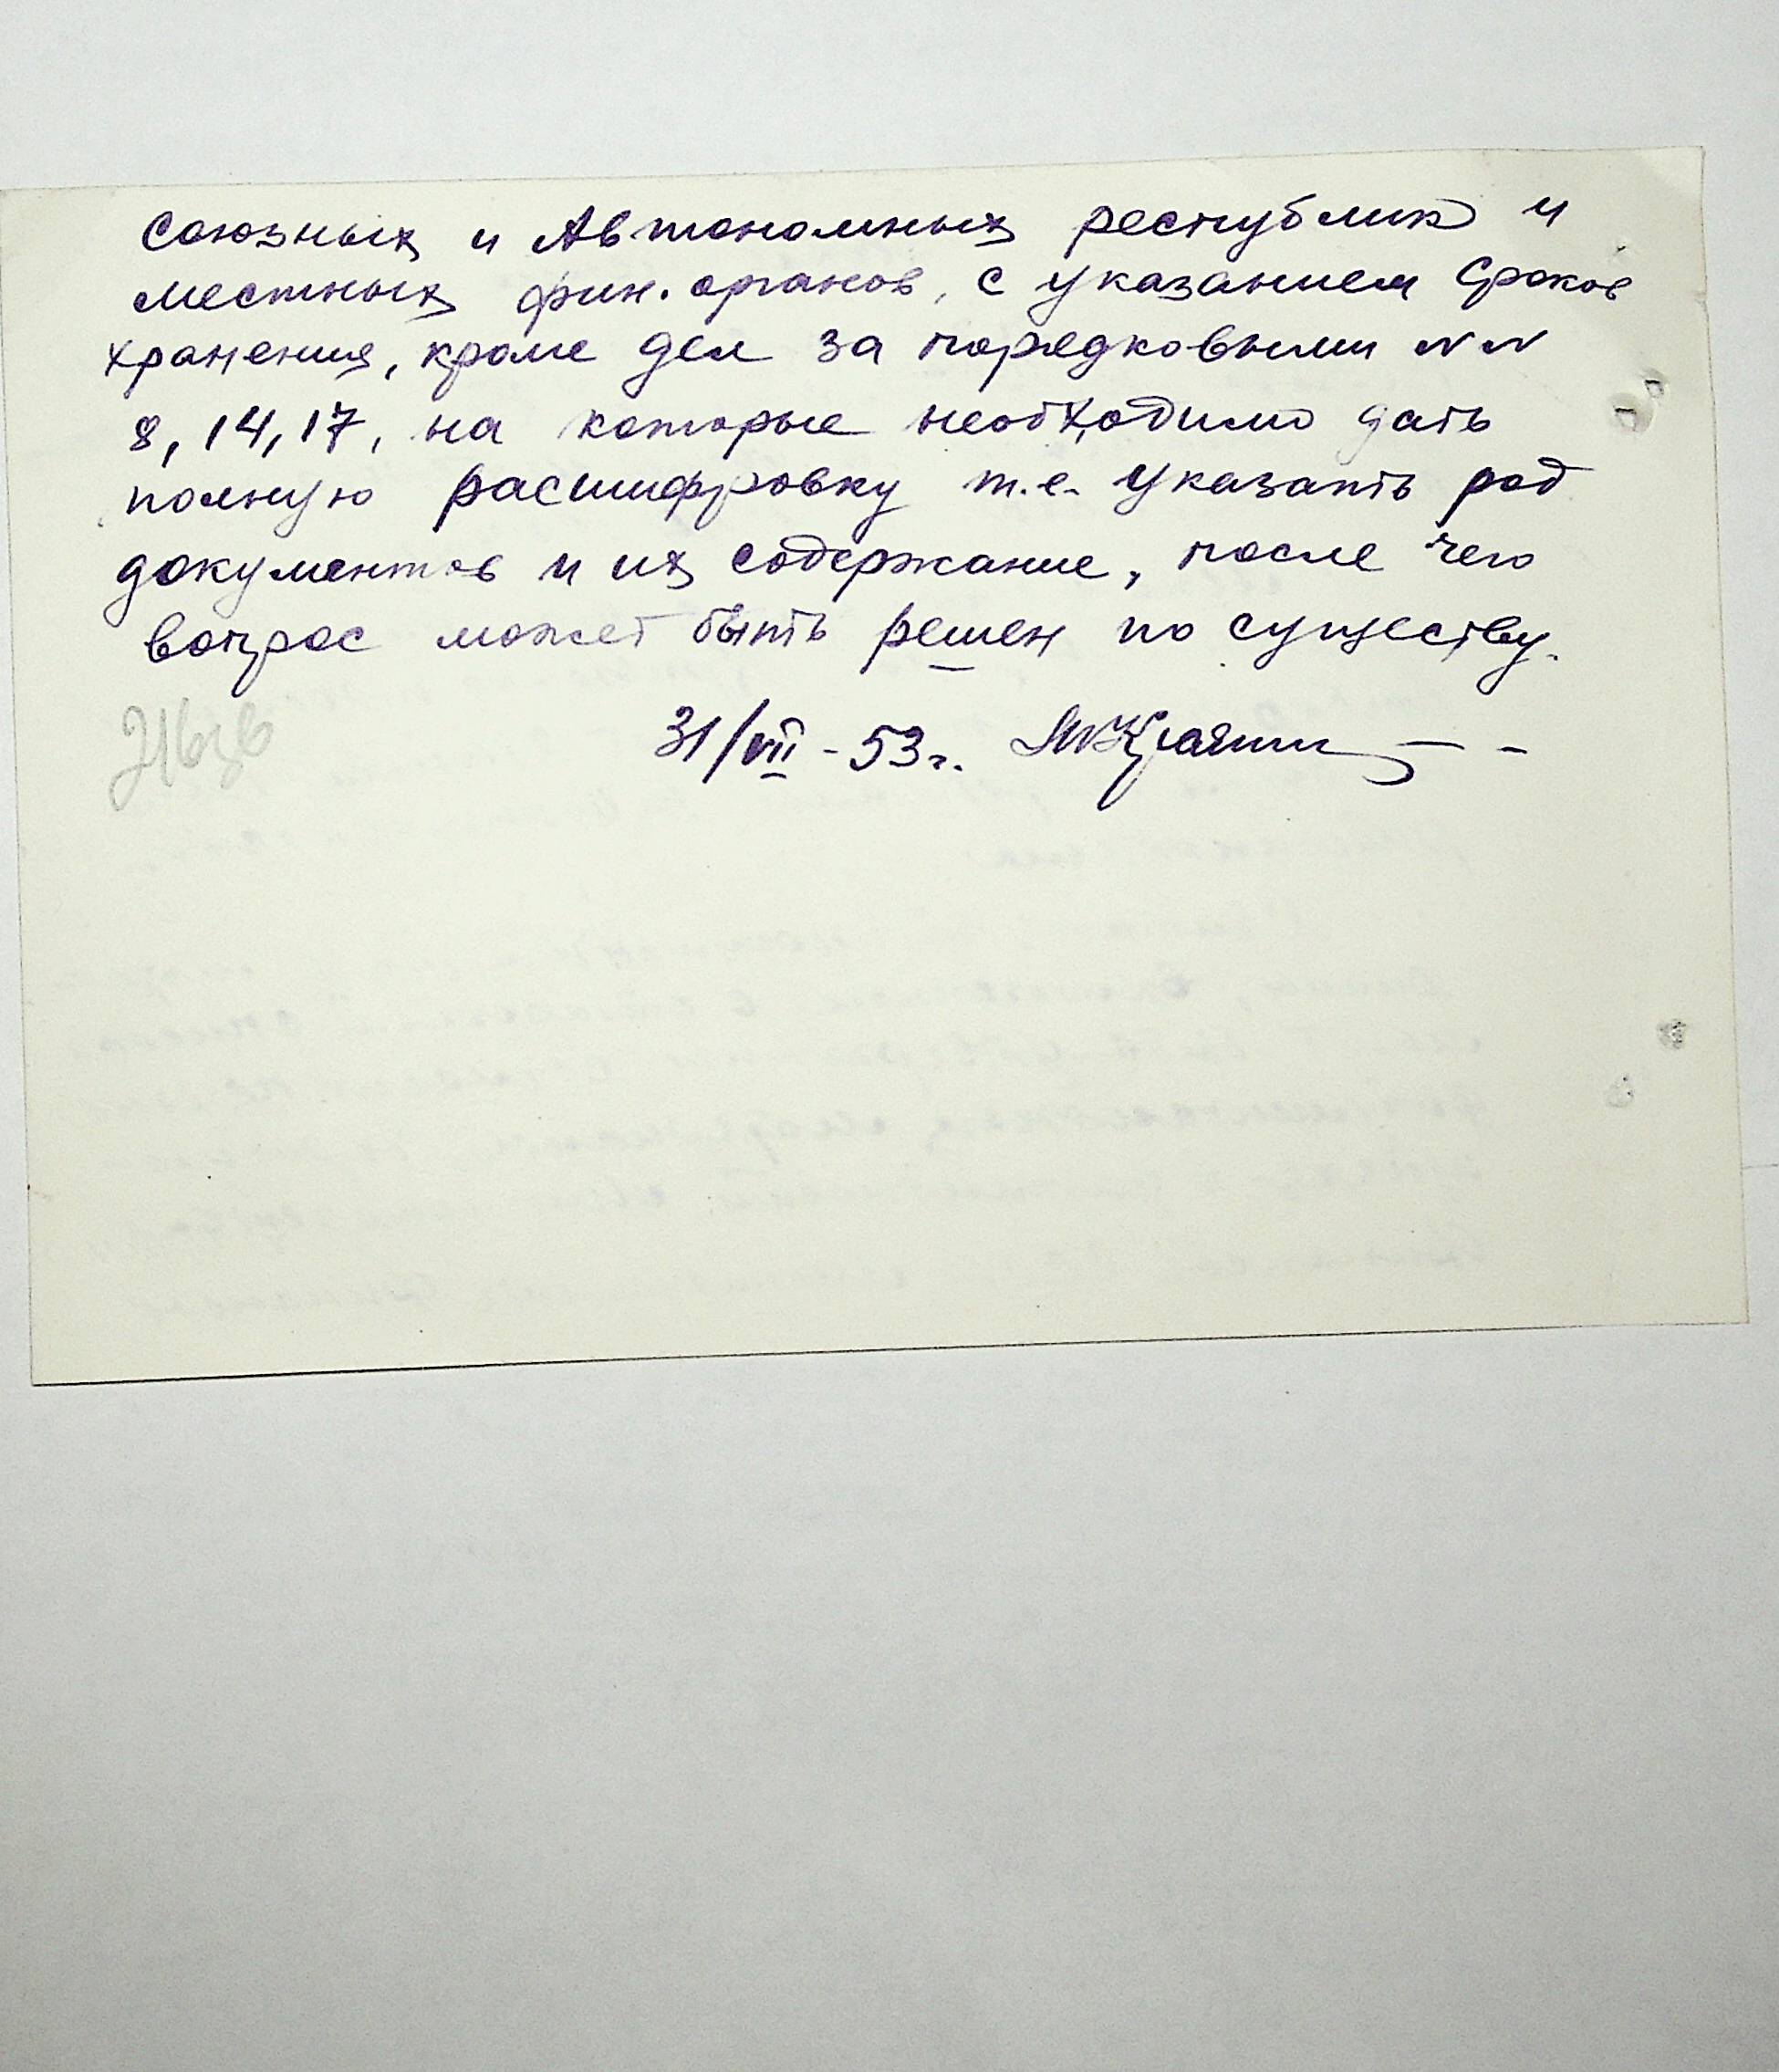 Союзных и Автономных республик и
местных фин. органов, с указанием сроков
хранения, кроме дел за порядковыми NN
8, 14, 17, на которые необходимо дать
полную расшифровку т.е. указать род
документов и их содержание, после чего
вопрос может быть решен по существу.
31/VII - 53 г.